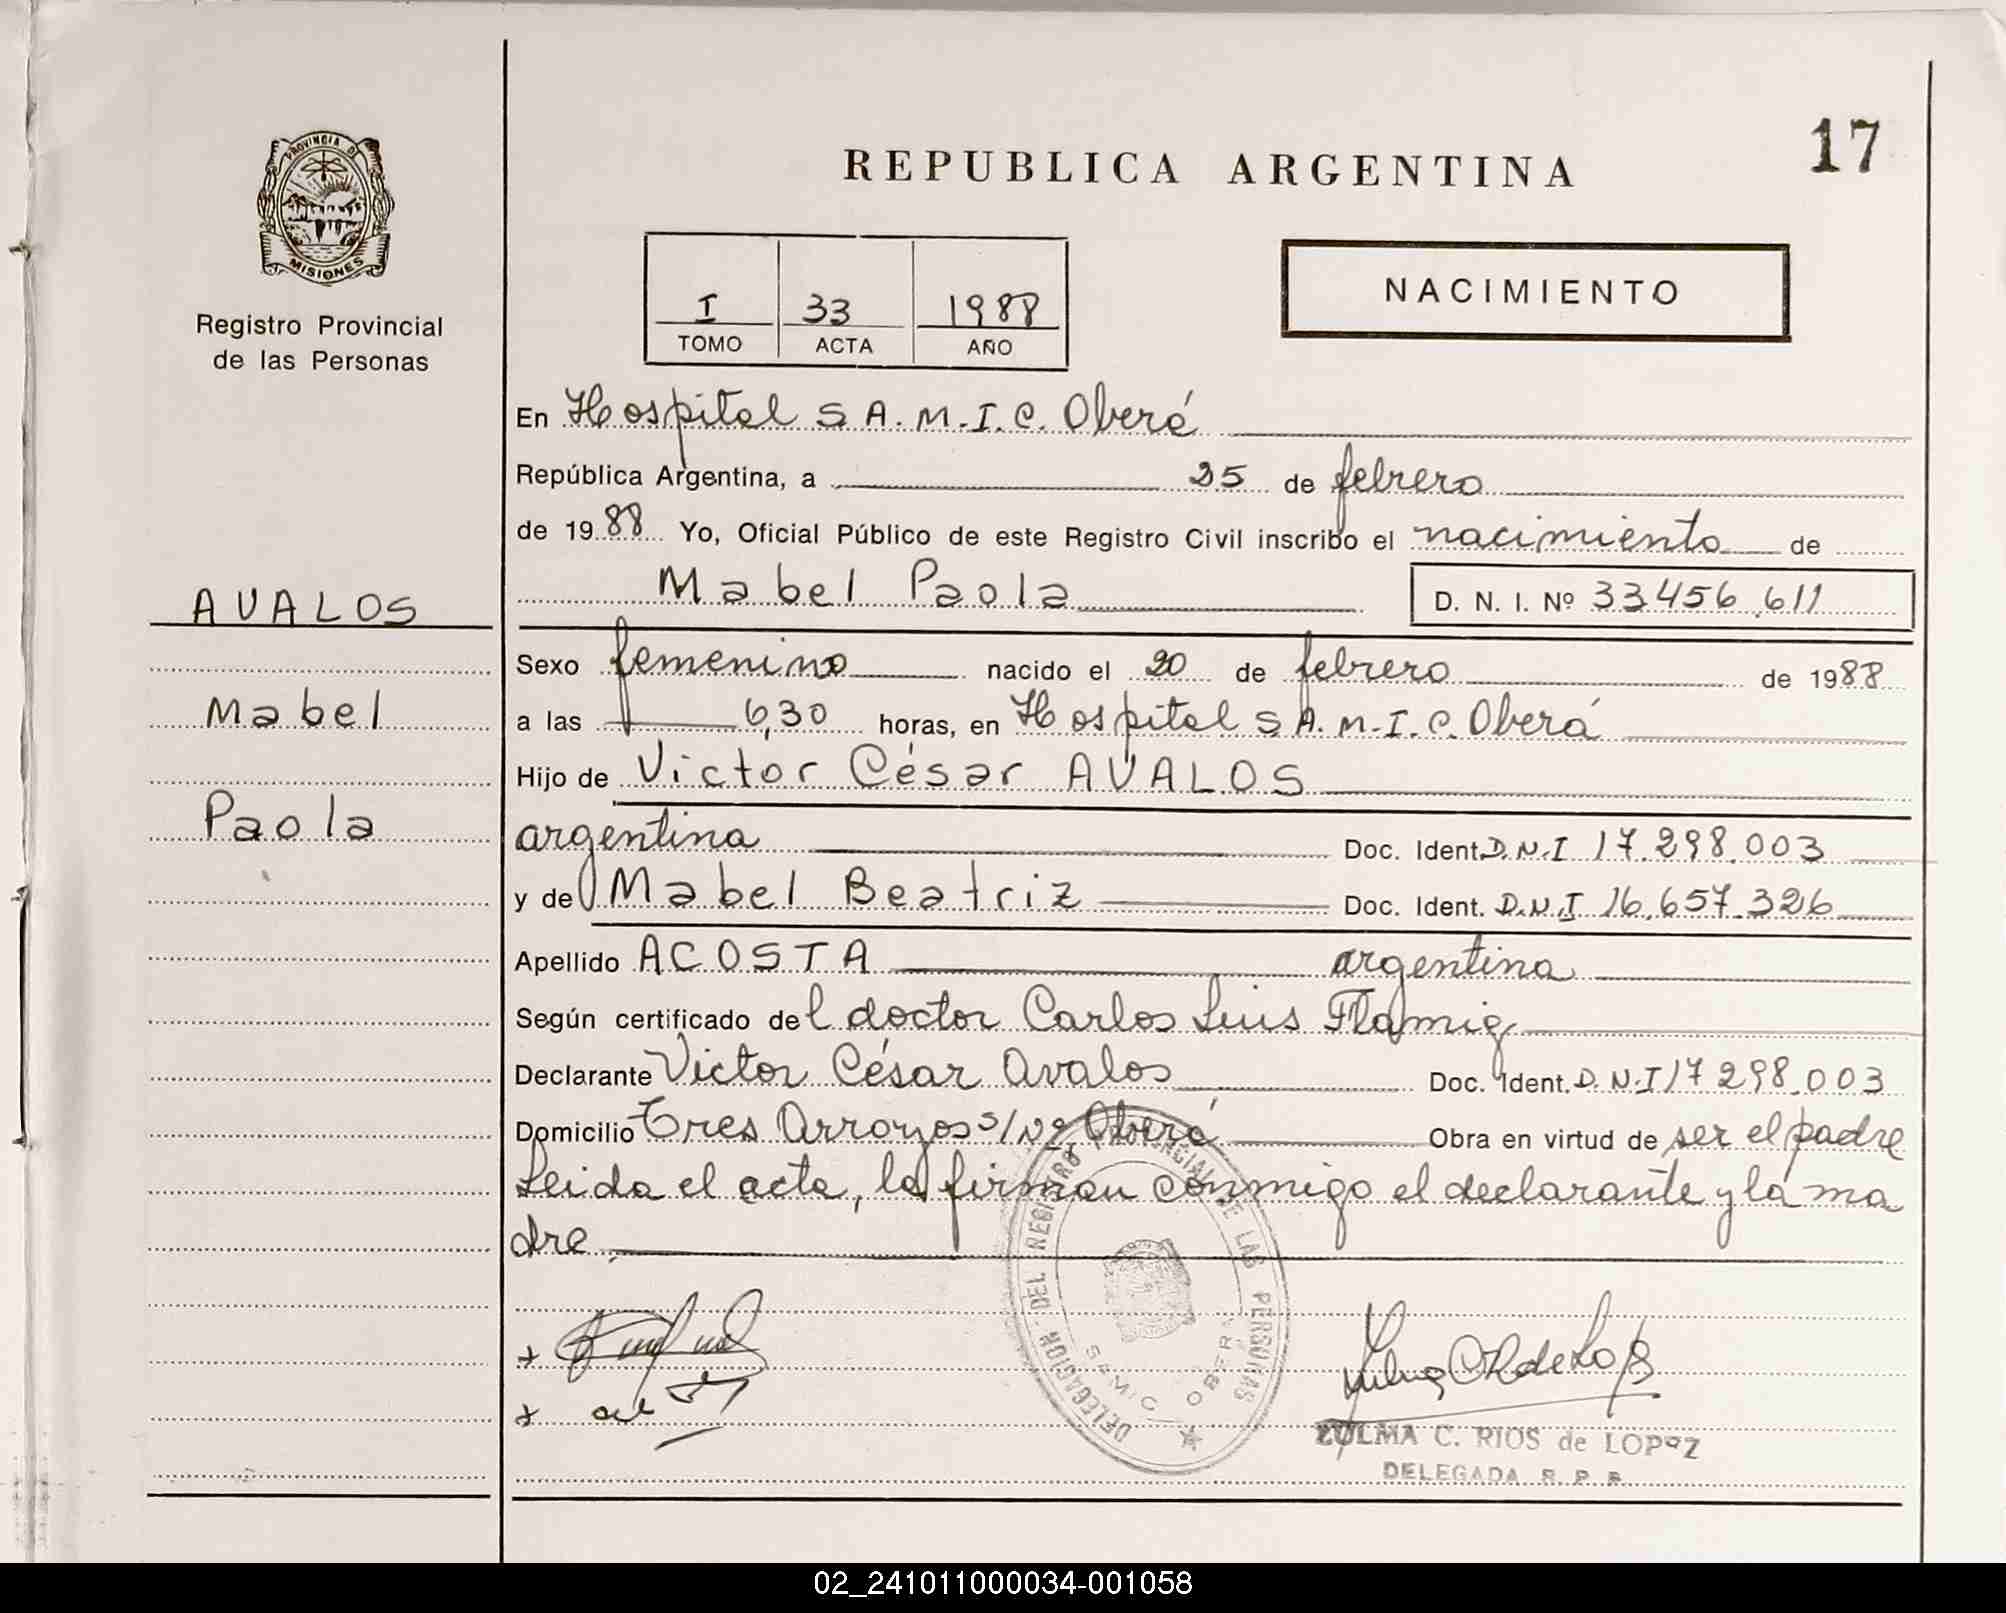 17
REPUBLICA ARGENTINA
PROVINCIA DE
MISIONES
Registro Provincial
de las Personas
NACIMIENTO
I 33 1988
TOMO ACTA AÑO
En Hospital S.A.M.I.C. Oberá
República Argentina, a 25 de febrero
de 1988 Yo, Oficial Público de este Registro Civil inscribo el nacimiento de
AVALOS
Mabel Paola D. N. I. Nº 33.456.611
Sexo femenino nacido el 20 de febrero de 1988
Mabel
a las 6,30 horas, en Hospital S.A.M.I.C. Oberá
Hijo de Victor César AVALOS
Paola
argentina Doc. Ident. D.N.I 17.298.003
y de Mabel Beatriz Doc. Ident. D.N.I 16.657.326
Apellido ACOSTA argentina
Según certificado del doctor Carlos Luis Flamig
Declarante Victor César Avalos Doc. Ident. D.N.I 17.298.003
Domicilio Tres Arroyos s/nº Oberá Obra en virtud de ser el padre
Leida el acta, la firman conmigo el declarante y la ma
dre
DELEGACION DEL REGISTRO PROVINCIAL DE LAS PERSONAS
SAMIC OBERA
ZULMA C. RIOS de LOPEZ
DELEGADA R. P. P.
02_241011000034-001058